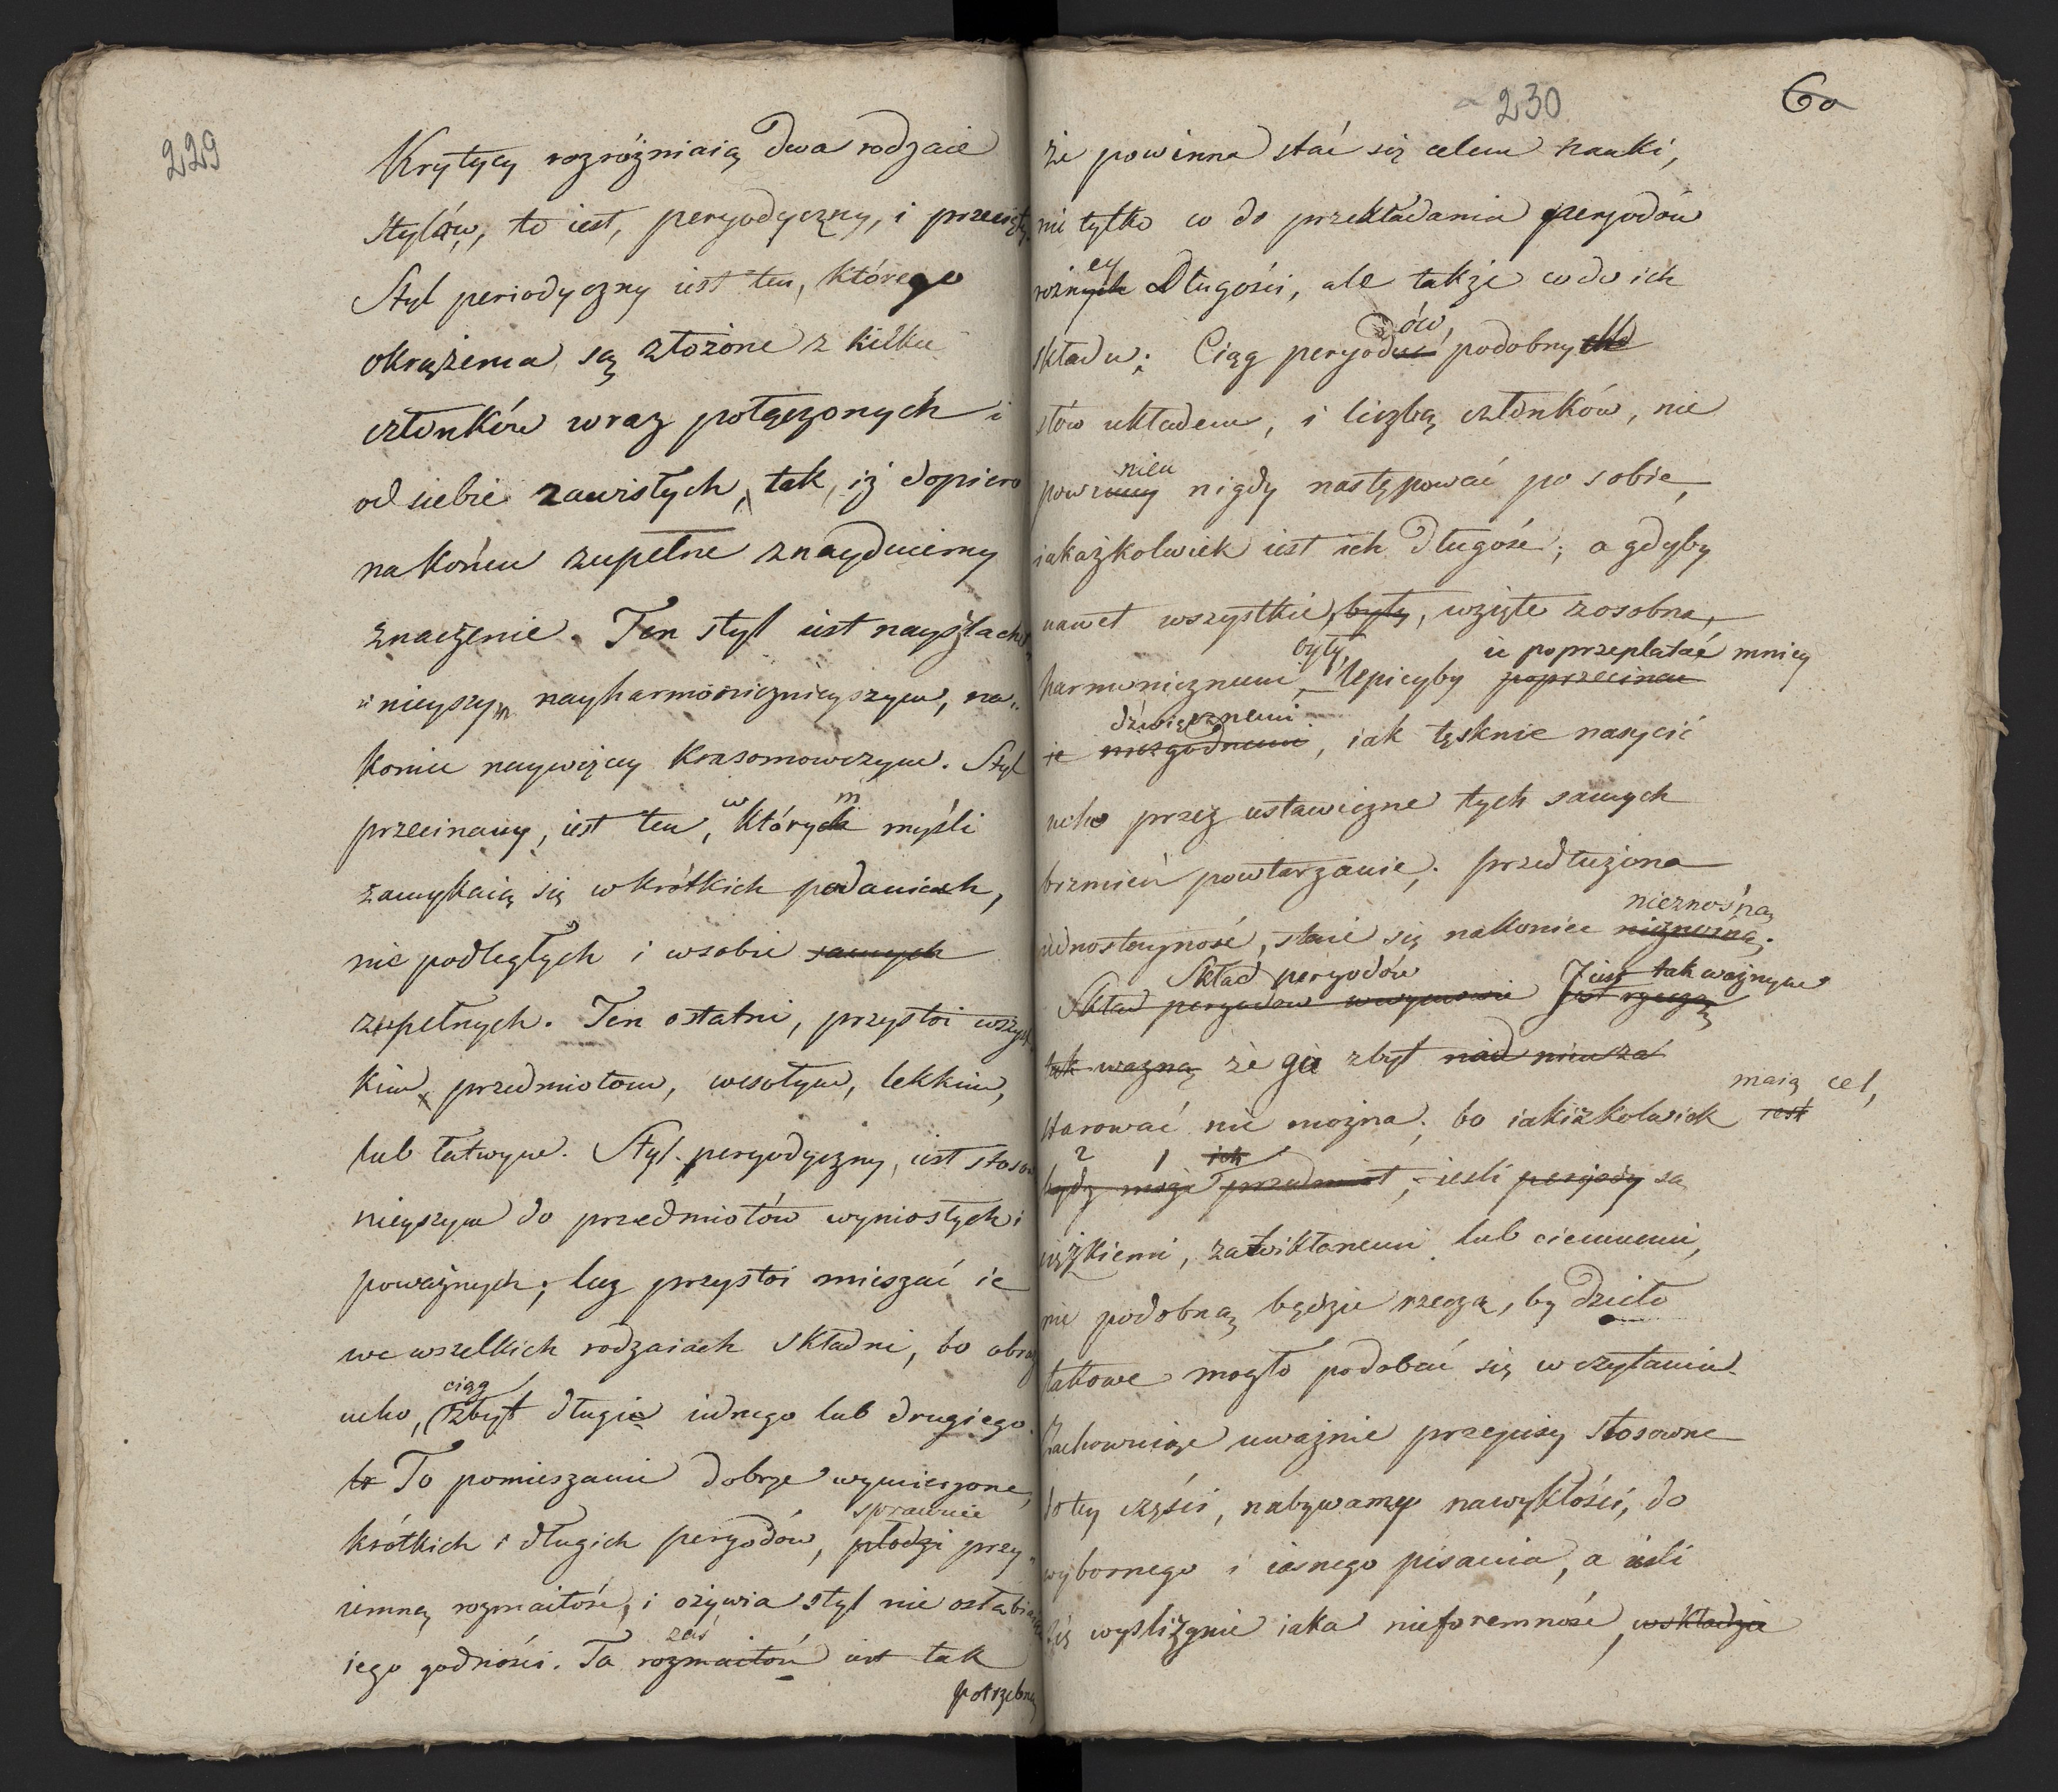 229
Krytycy rozróżniaią dwa rodzaie
stylów, to iest, peryodyczny, i przecięty.
Styl periodyczny iest ten, którego
okrążenia są złożone z kilku
członków wraz połączonych i
od siebie zawisłych, tak, iż dopiero
na końcu zupełne znayduiemy
znaczenie. Ten styl iest nayszlachet„
„nieyszym, nayharmoniczneyszym, na„
koniec naywięcey krasomowczym. Styl
w m
przecinany, iest ten, których myśli
zamykaią się w krótkich podaniach,
nie podległych i w sobie samych
zupełnych. Ten ostatni, przystoi wszyst
kim przedmiotom, wesołym, lekkim,
lub łatwym. Styl peryodyczny, iest stosow
nieyszym do przedmiotów wyniosłych i
poważnych; lecz przystoi mieszać ie
we wszelkich rodzaiach składni, bo obraz
ciąg
ucho, zbyt długie iednego lub drugiego.
to To pomieszanie dobrze wymierzone,
sprawuie
krótkich i długich peryodów, płodzi przy„
iemną rozmaitość, i ożywia styl nie osłabiaiąc
zaś
iego godności. Ta rozmaitość iest tak
potrzebną
230
60
że powinna stać się celem nauki,
nie tylko co do przekładania peryodów
ey
rożnych długości, ale także co do ich
ów,
składu; Ciąg peryodu podobnych
słów układem, i liczbą członków, nie
nien
powinny nigdy następować po sobie,
iakażkolwiek iest ich długość; a gdyby
nawet wszystkie były, wzięte zosobna,
były, ie poprzeplatać mniey
harmonicznemi, lepieyby poprzecinać
dźwięcznemi
ie niezgodnemi, iak tęsknie nasycić
ucho przez ustawiczne tych samych
brzmień powtarzanie; przedłużona
nieznośną
iednostayność, staie się nakoniec nieznośną.
Skład peryodów Jiest tak ważnym
Skład peryodow w wymowie jest rzeczą
tak ważną że go zbyt nad niem za
maią cel,
starować nie można; bo iakiżkolwiek iest
2 1 ich
będź może przedmiot, iesli peryody są
ciężkiemi, zawikłanemi lub ciemnemi,
nie podobną będzie rzeczą, by dzieło
takowe mogło podobać się w czytaniu.
Zachowuiąc uważnie przepisy stosowne
do tey części, nabywamy nawykłości, do
wybornego i iasnego pisania, a iesli
się wyslizgnie iaka nieforemność, w składzie